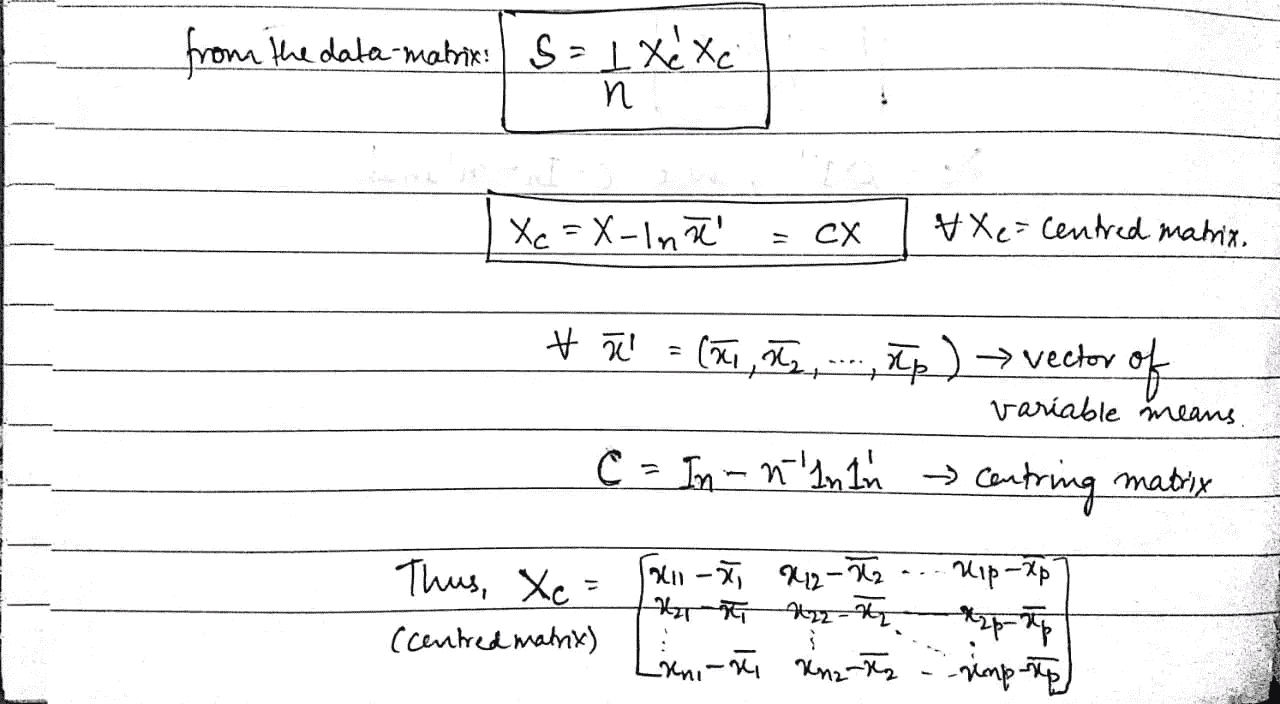 from the data-matrix: S = 1/n Xc' Xc
Xc = X - 1n x̄' = CX ∀ Xc = Centred matrix.
∀ x̄' = (x̄1, x̄2, ...., x̄p) → vector of
variable means.
C = In - n⁻¹ 1n 1n' → Centring matrix
Thus, Xc = [x11 - x̄1 x12 - x̄2 ... x1p - x̄p
x21 - x̄1 x22 - x̄2 ... x2p - x̄p
(centred matrix) ⋮ ⋮ ⋱ ⋮
xn1 - x̄1 xn2 - x̄2 ... xnp - x̄p]